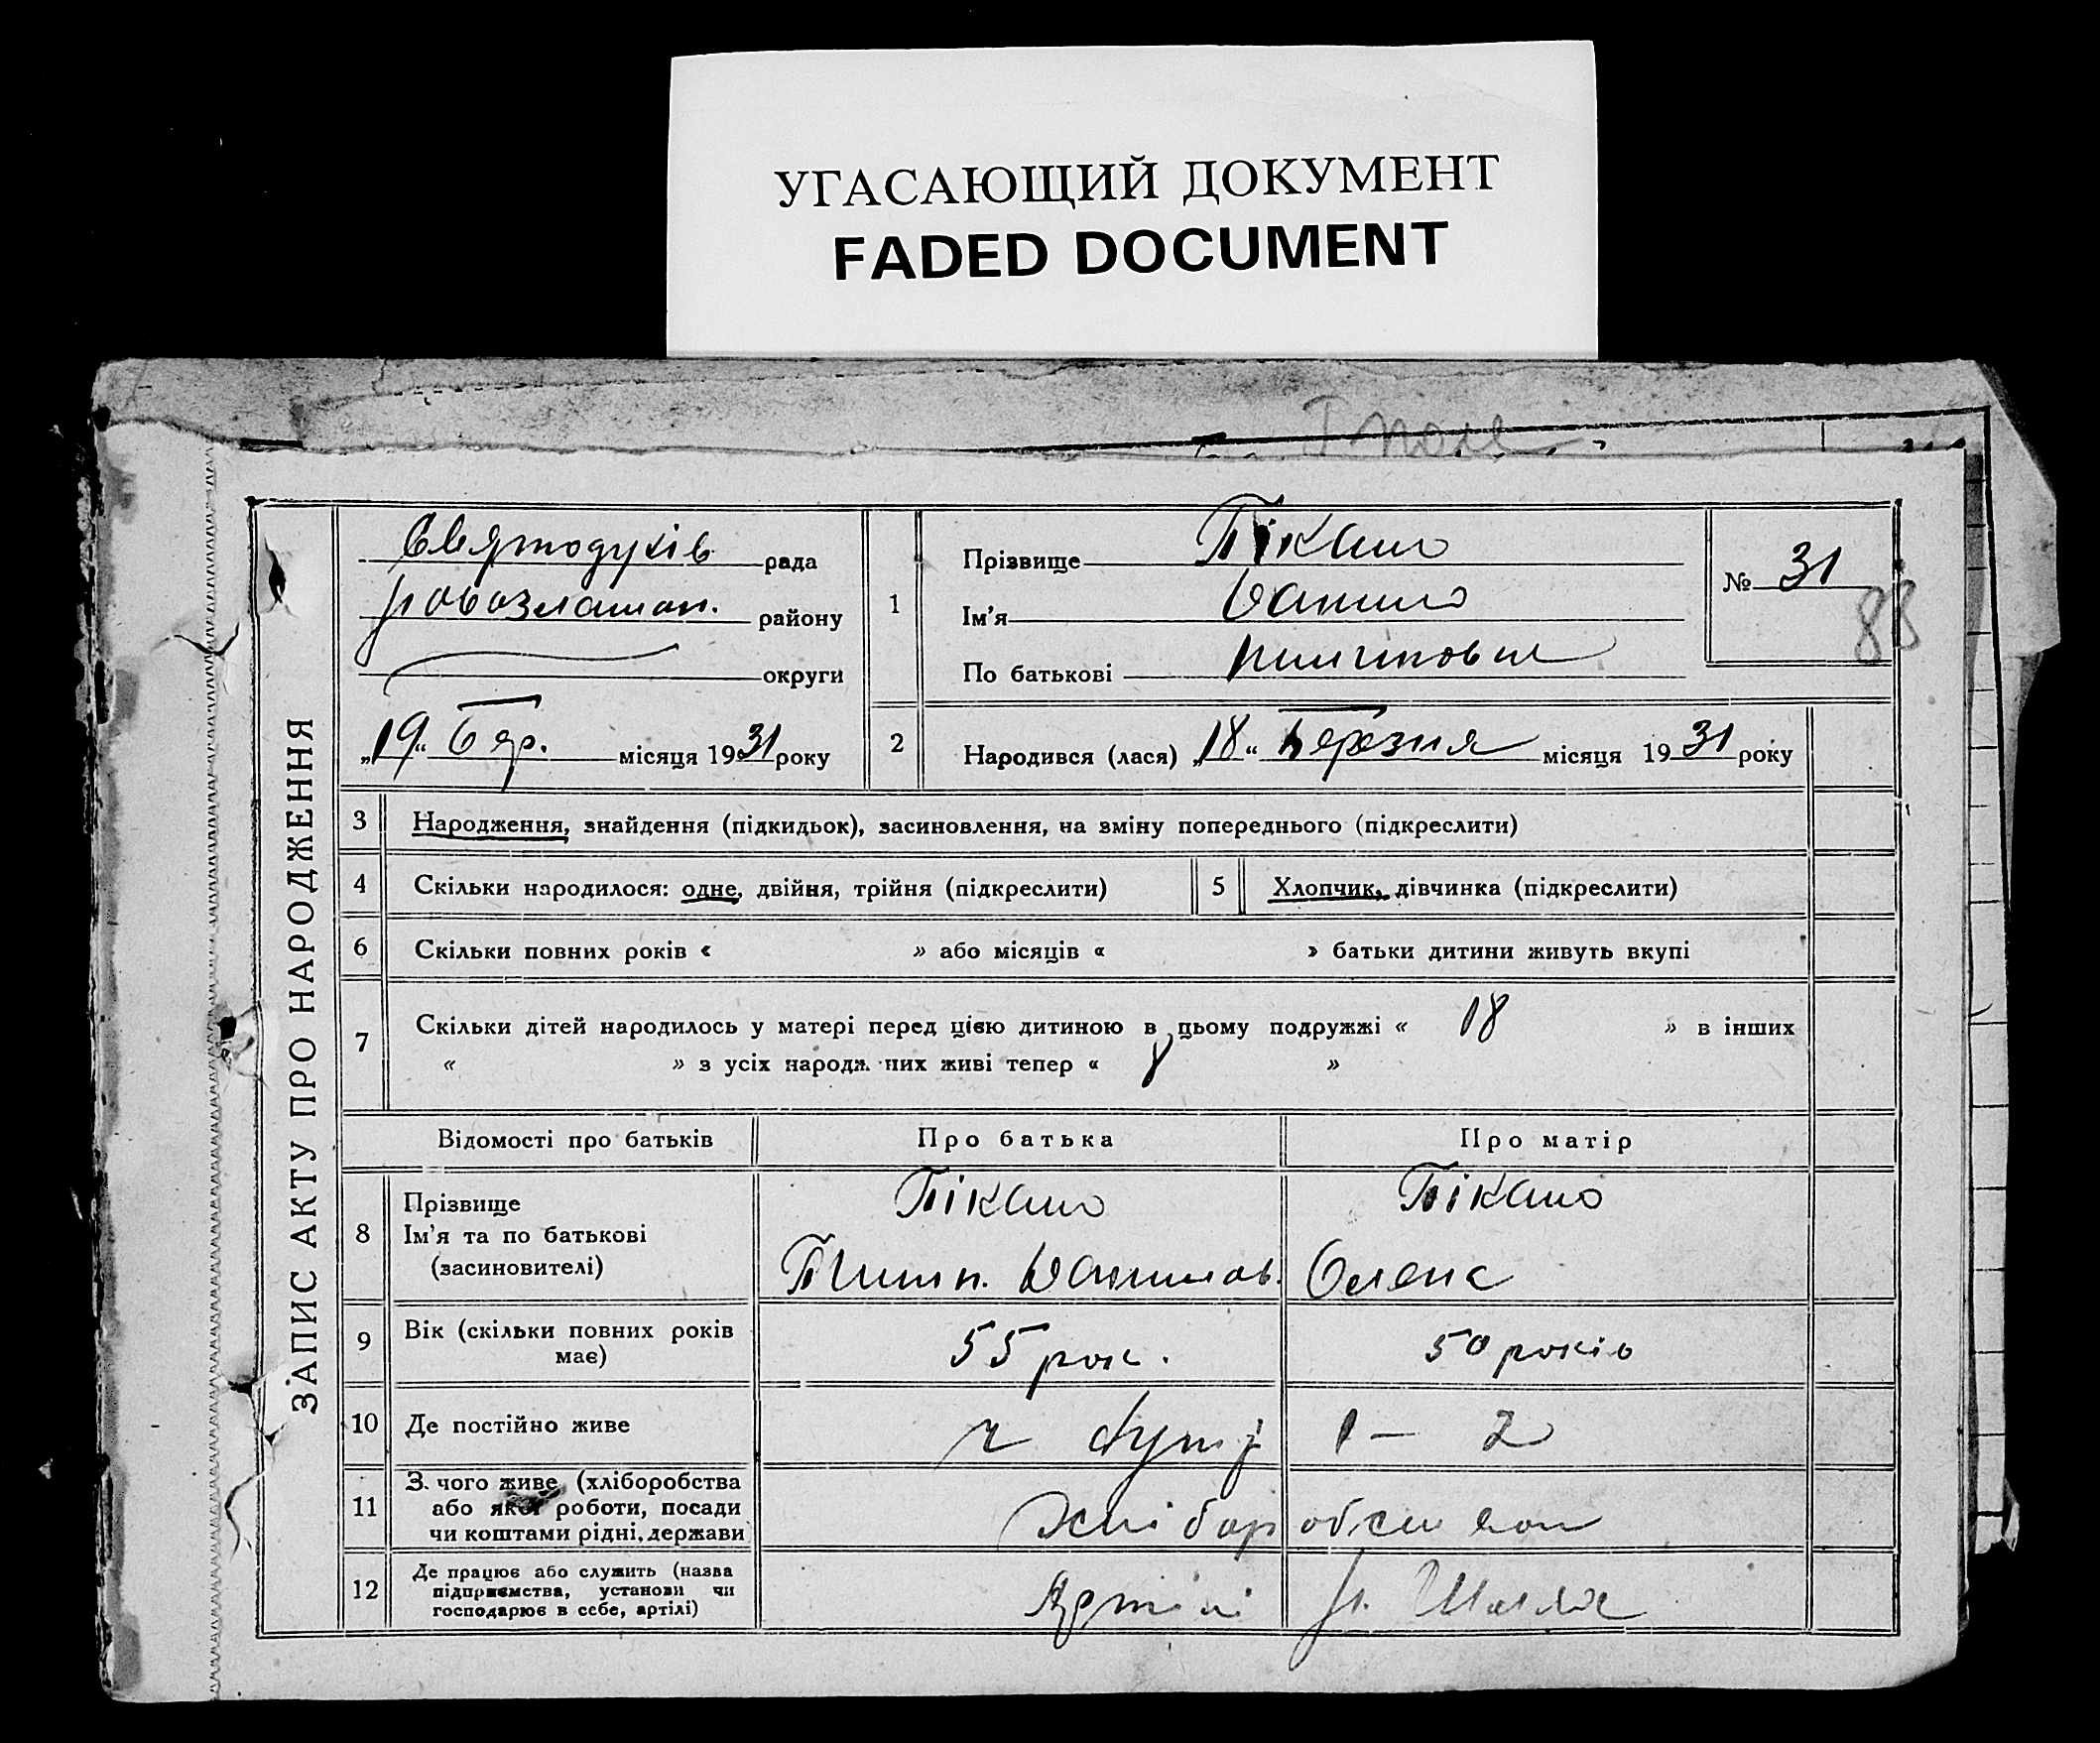 УГАСАЮЩИЙ ДОКУМЕНТ
FADED DOCUMENT
ЗАПИС АКТУ ПРО НАРОДЖЕННЯ
Святодухів рада
Новозлатоп. району
округи
„19“ бер. місяця 1931 року
1
Прізвище Пікало
Ім'я Данило
По батькові
№ 31
88
2
Народився (лася) „18“ березня місяця 1931 року
3 Народження, знайдення (підкидьок), засиновлення, на зміну попереднього (підкреслити)
4 Скільки народилося: одне, двійня, трійня (підкреслити)
5 Хлопчик, дівчинка (підкреслити)
6 Скільки повних років « » або місяців « » батьки дитини живуть вкупі
7 Скільки дітей народилось у матері перед цією дитиною в цьому подружжі « 18 » в інших
« » з усіх народж них живі тепер « 8 »
Відомості про батьків Про батька Про матір
8 Прізвище
Ім'я та по батькові
(засиновителі)
Пікало
Пилип. Данилов.
Пікало
Олена
9 Вік (скільки повних років
має)
55 рок.
50 років
10 Де постійно живе
1 — 2
11 З чого живе (хліборобства
або якої роботи, посади
чи коштами рідні, держави
хліборобством
12 Де працює або служить (назва
підприємства, установи чи
господарює в себе, артілі)
Артілі Н. Шлях